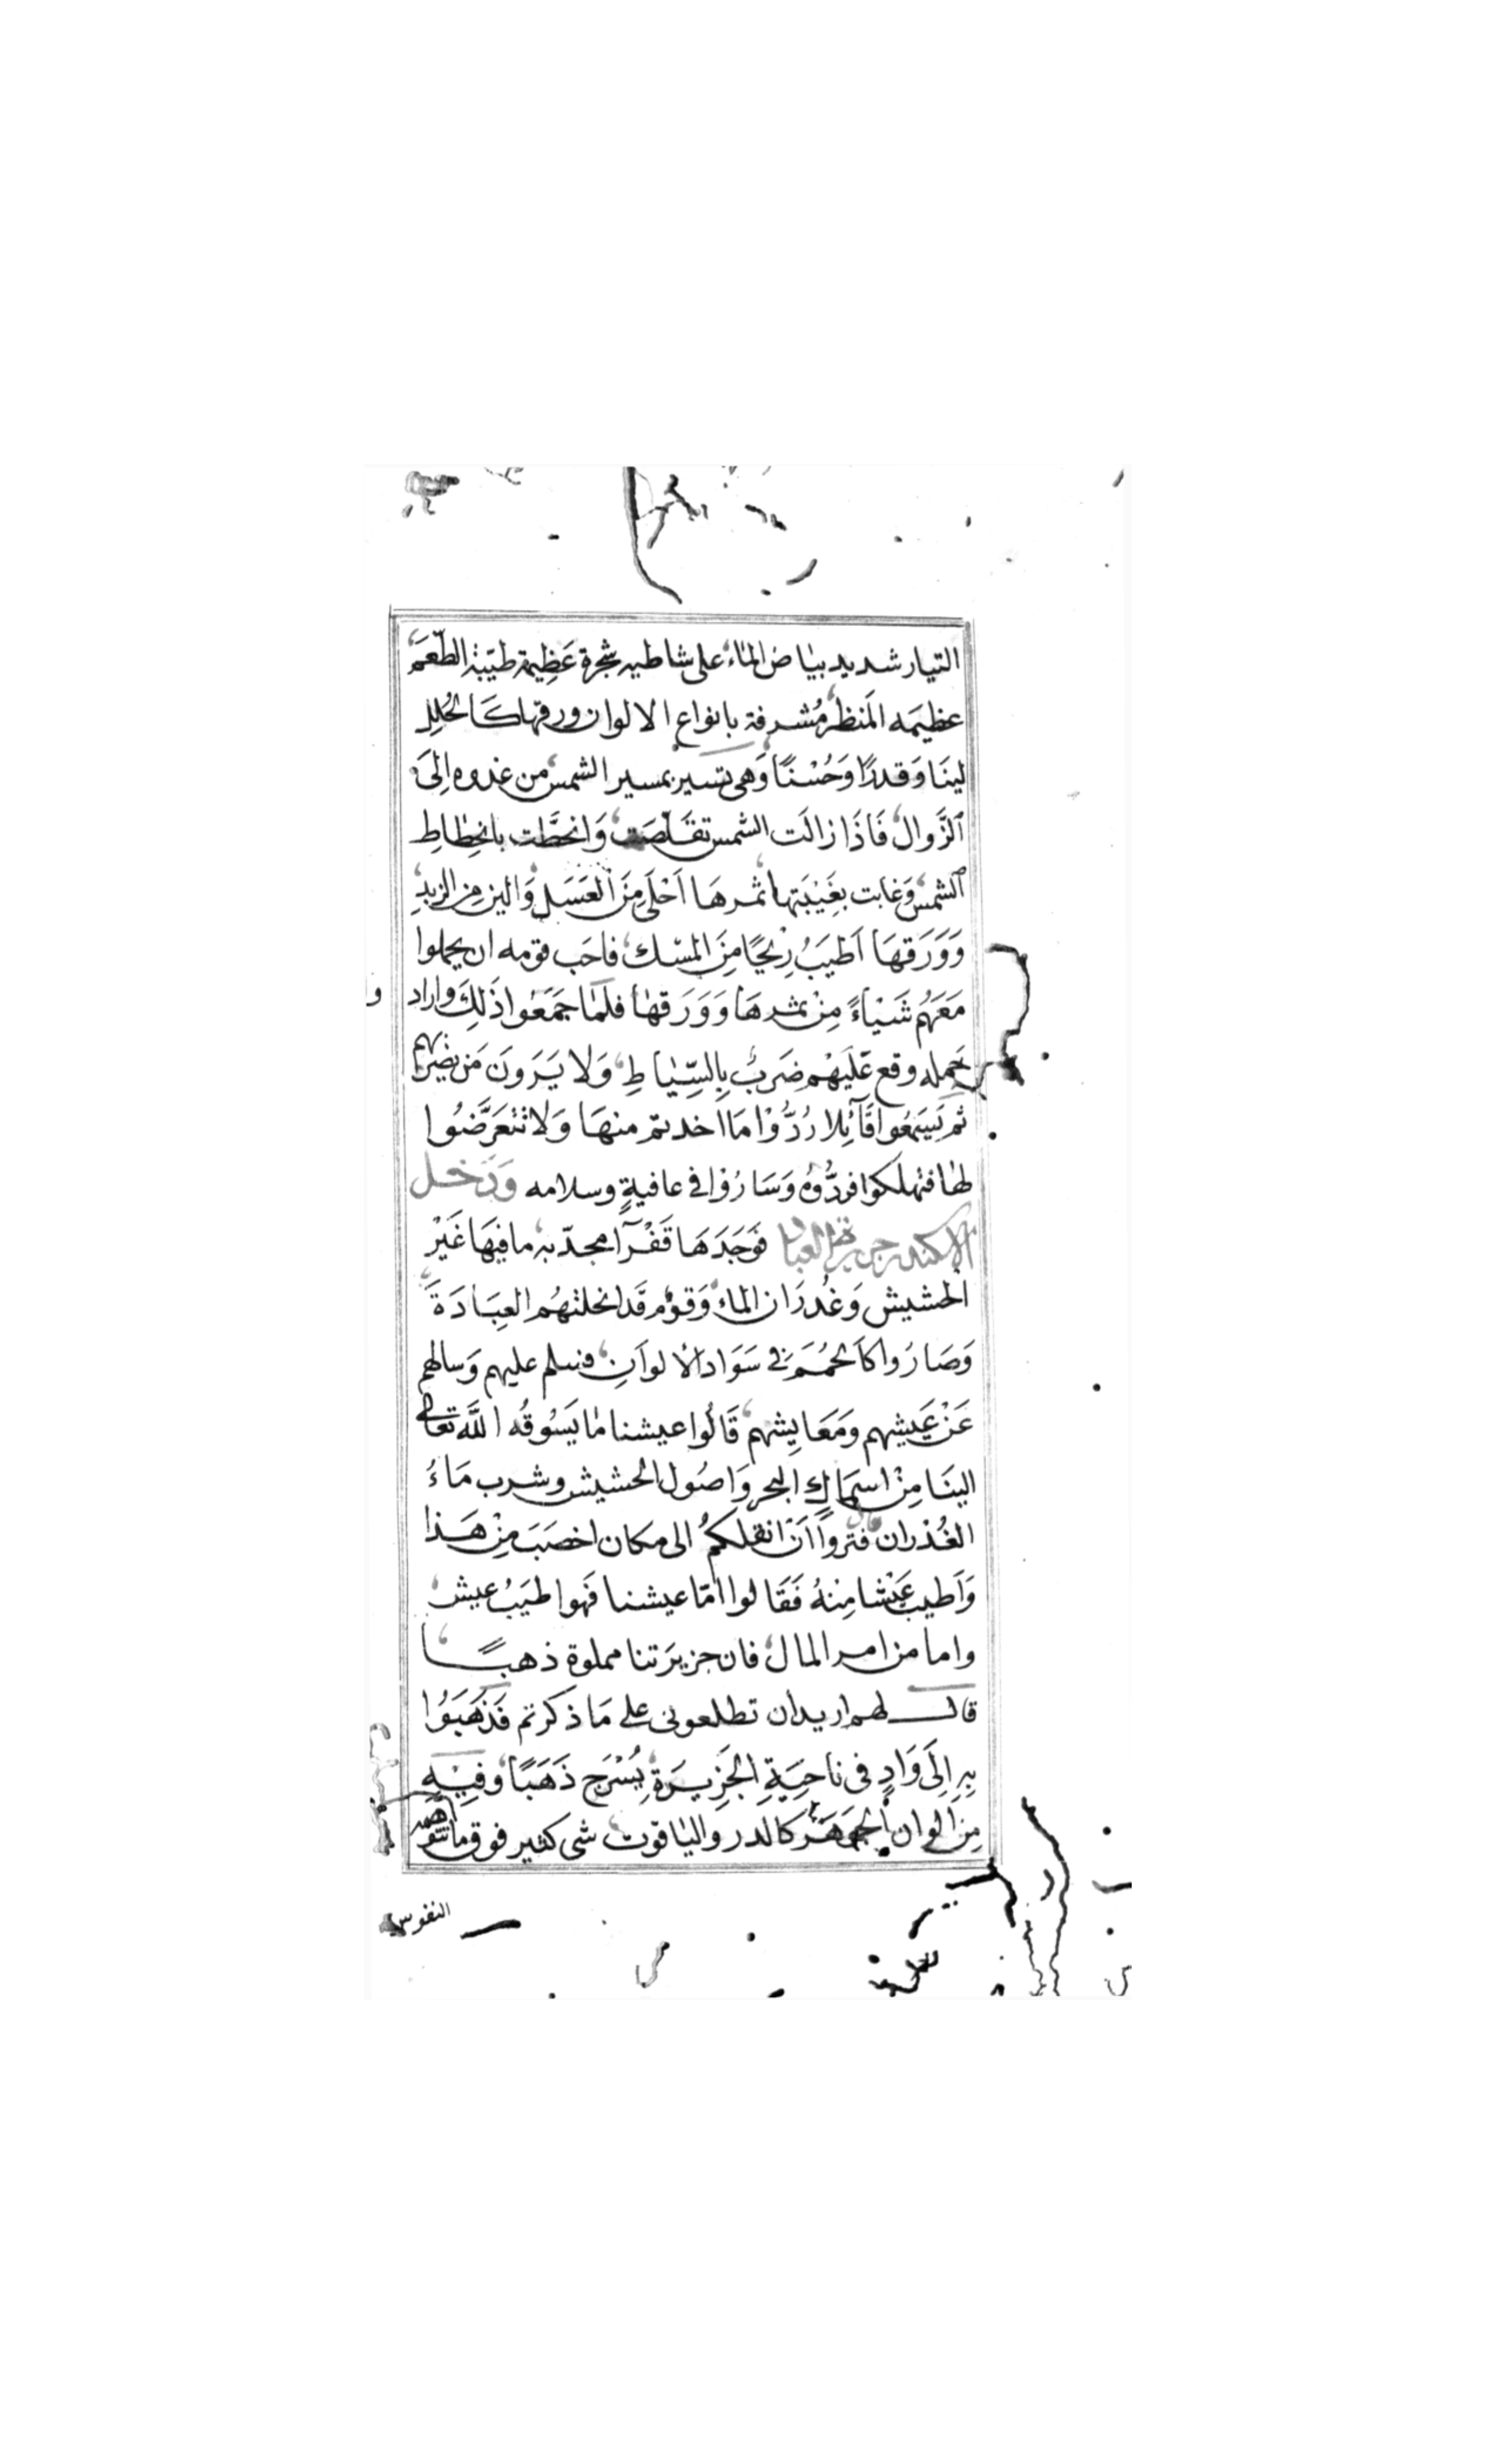 التيار شديد بياض الماء على شاطيه شجرة عظيمة طيبة الطعم
عظيمه المنظر مُشرفة بانواع الالوان ورقها كَالحُلل
لينَا وَقدرًا وَحُسْنًا وَهي تسير بمسير الشمس من غدوه اِلىَ
الزَّوال فَاذَا زالَت الشمس تقلّصَت وَانحطَّت بانحِطاطِ
الشمس وَغابت بغَيْبَتها ثمرهَا اَحْلَى مِنَ العَسَل وَالين من الزبدِ
وَوَرَقهَا اَطيَبُ رِيْحًا مِنَ المسْك فاحَب قومه ان يحملوا
مَعَهُم شَيْاءً مِنْ ثمرهَا وَوَرَقهَا فلما جَمَعُوا ذَلِكَ واراد وا
حَمله وقع عَلَيْهم ضَربٌ بِالسِّيَاطِ وَلا يَرَونَ مَن يضربهم
ثم يَسمَعُوا قَآئِلا رُدُّوْا مَا اخدتم منهَا وَلا تتعَرَّضُوا
لهَا فتهلكوا فردُّوهُ وَسَارُوْا في عافيةٍ وسلامه وَدَخل
الاسكندر جزيرة العباد فوَجَدَهَا قَفْرًا مجدّبه ما فيهَا غَيْر
الحشيش وَغُدرَان الماء وَقوْم قَد انحلتهُم العِبَادَة
وَصَارُوا كاَلحُمَم في سَوَاد الالوَانِ فسلم عليهم وَسالهم
عَنْ عَيشِهم وَمَعَايشِهم قَالُوا عيشنا مَا يَسُوقُه اللَّه تعالى
الينَا مِنْ اسمَاكِ البحر وَاصُول الحشيش وشرب مَاءُ
الغُدْران قال فتروا اَنْ انقلكمُ الى مكان اخصَبَ مِنْ هَذا
وَاَطيب عَيْشا مِنْهُ فَقَالوا امّا عيشنا فَهوا طيَبُ عيش
واما من امر المال فان جزيرَتنا مملوة ذهبًا
قال لهم اريد ان تطلعونى على مَا ذكرتم فَذَهَبَوُا
بِهِ اِلَى وَادٍ فى ناحِيَةِ الجَزِيرَة يُسْرَج ذَهَبًا وفِيْهِ
مِن الوان الجوهَر كالدر والياقوت شى كثير فوق ما تتوهم
النفوس